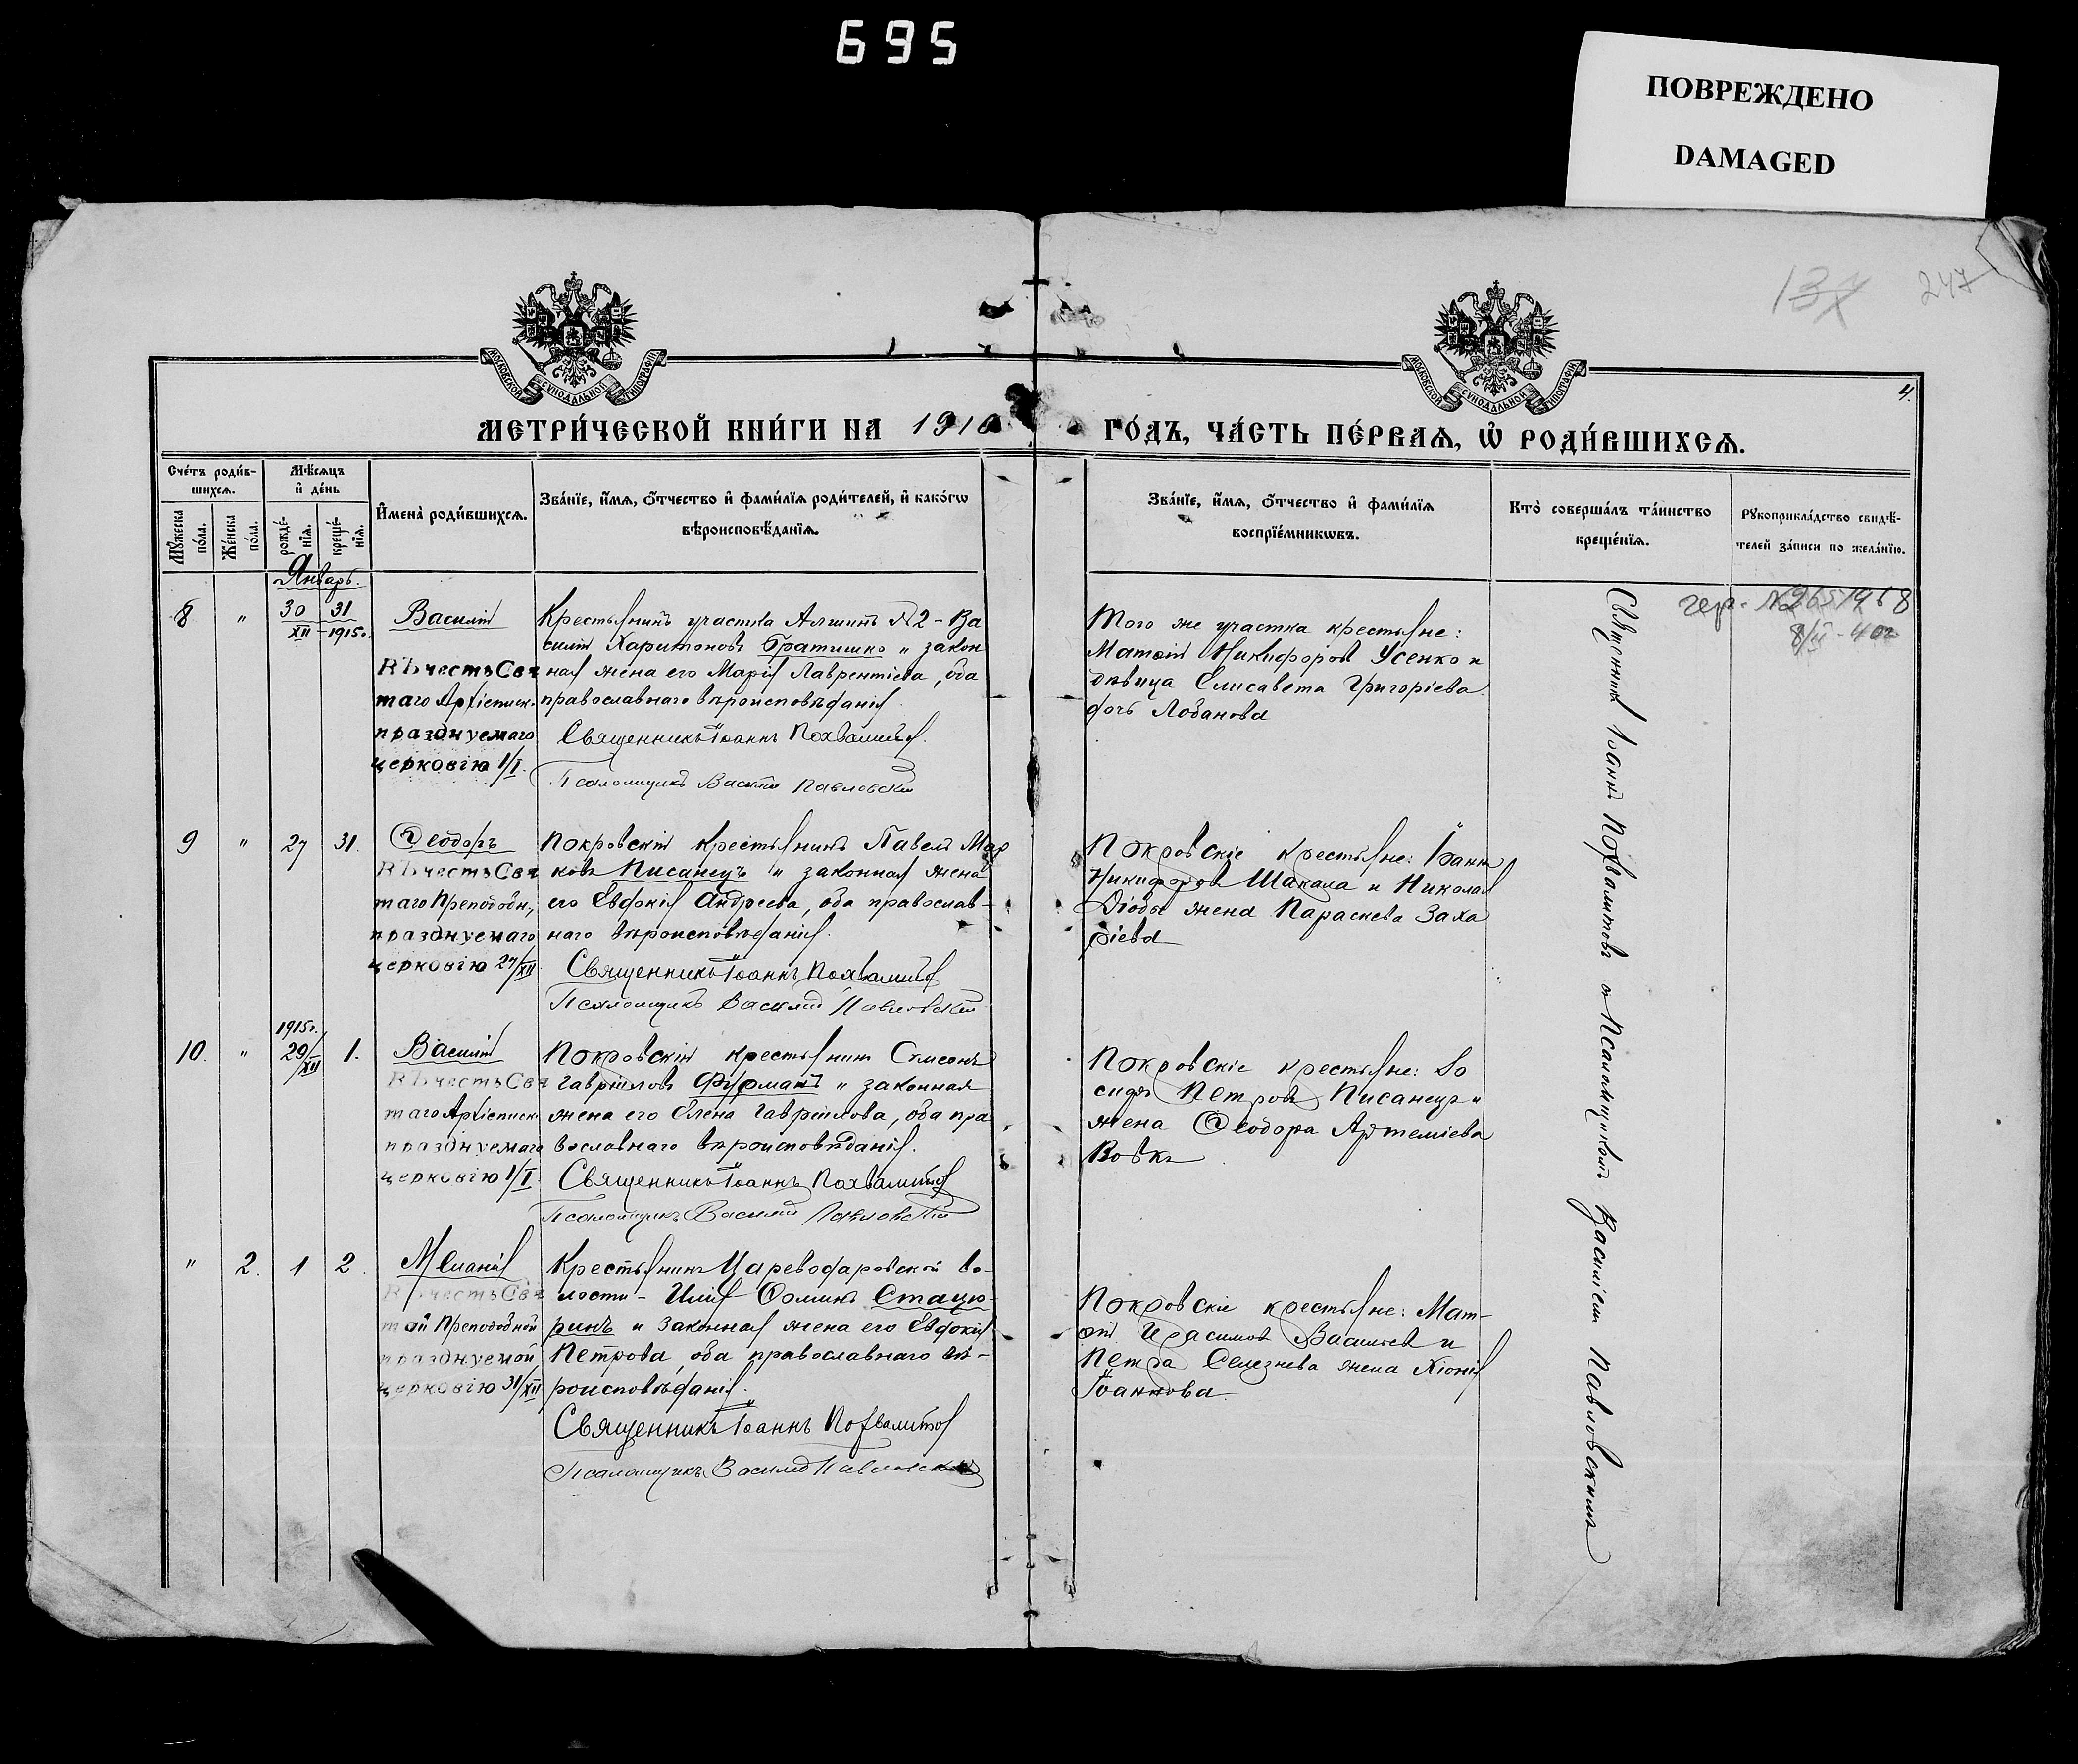 695
ПОВРЕЖДЕНО
DAMAGED
247
4.
МОСКОВСКОЙ СѴНОДАЛЬНОЙ ТИПОГРАФІИ
МОСКОВСКОЙ СѴНОДАЛЬНОЙ ТИПОГРАФІИ
МЕТРИ́ЧЕСКОЙ КНИ́ГИ НА 191
ГО́ДЪ, ЧА́СТЬ ПЕ́РВАѦ, Ѡ҆ РОДИ́ВШИХСѦ.
Сче́тъ роди́в-
шихсѧ.
Мꙋ́жеска по́ла.
Же́нска по́ла.
Мѣ́сѧцъ
и҆ де́нь
рожде́-
нїѧ.
креще́-
нїѧ.
И҆мена̀ роди́вшихсѧ.
Зва́нїе, и҆́мѧ, ѻ҆́тчество и҆ фами́лїѧ роди́телей, и҆ како́гѡ
вѣроисповѣ́данїѧ.
Зва́нїе, и҆́мѧ, ѻ҆́тчество и҆ фами́лїѧ
воспрїе́мникѡвъ.
Кто̀ соверша́лъ та́инство
креще́нїѧ.
Рꙋкоприкла́дство свидѣ́-
телей за́писи по жела́нїю.
Январь.
8 " 30 31
XII - 1915г.
Василій
Въ честь Свя
таго Архіеписк.
празднуемаго
церковію 1/I.
Крестьянинъ участка Алшитъ №2 - Ва
силій Харитоновъ Братишко и закон
ная жена его Марія Лаврентіева, оба
православнаго вѣроисповѣданія.
Священникъ Іоаннъ Похвалитовъ
Псаломщикъ Василій Павловскій
Того же участка крестьяне:
Матѳій Никифоровъ Усенко и
дѣвица Елисавета Григоріева
дочь Лобанова
9 " 27 31.
Ѳеодоръ
Въ честь Свя
таго Преподобн.,
празднуемаго
церковію 27/XII
Покровскій крестьянинъ Павелъ Мар
ковъ Писанецъ и законная жена
его Евдокія Андреева, оба православ-
наго вѣроисповѣданія.
Священникъ Іоаннъ Похвалитовъ
Псаломщикъ Василій Павловскій
Покровскіе крестьяне: Іоаннъ
Никифоровъ Шакала и Николая
Діоды жена Параскева Заха
ріева
1915г.
10. " 29/XII 1.
Василій
Въ честь Свя
таго Архіеписк.
празднуемаго
церковію 1/I
Покровскій крестьянинъ Сѵмеонъ
Гавріиловъ Фурманъ и законная
жена его Елена Гавріилова, оба пра
вославнаго вѣроисповѣданія.
Священникъ Іоаннъ Похвалитовъ
Псаломщикъ Василій Павловскій
Покровскіе крестьяне:
Петровъ Писанецъ и
жена Ѳеодора Артеміева
Вовкъ
" 2. 1 2.
Меланія
Въ честь Свя
той Преподобной
празднуемой
церковію 31/XII
Крестьянинъ Цареводаровской во-
лости - Илія Ѳоминъ Стацю-
ринъ и законная жена его Евдокія
Петрова, оба православнаго вѣ-
роисповѣданія.
Священникъ Іоаннъ Похвалитовъ
Псаломщикъ Василій Павловскій
Покровскіе крестьяне: Мат-
ѳій Герасимовъ Васильев и
Петра Селезнева жена Хіонія
Іоаннова
Священникъ Іоаннъ Похвалитовъ съ Псаломщикомъ Василіемъ Павловскимъ